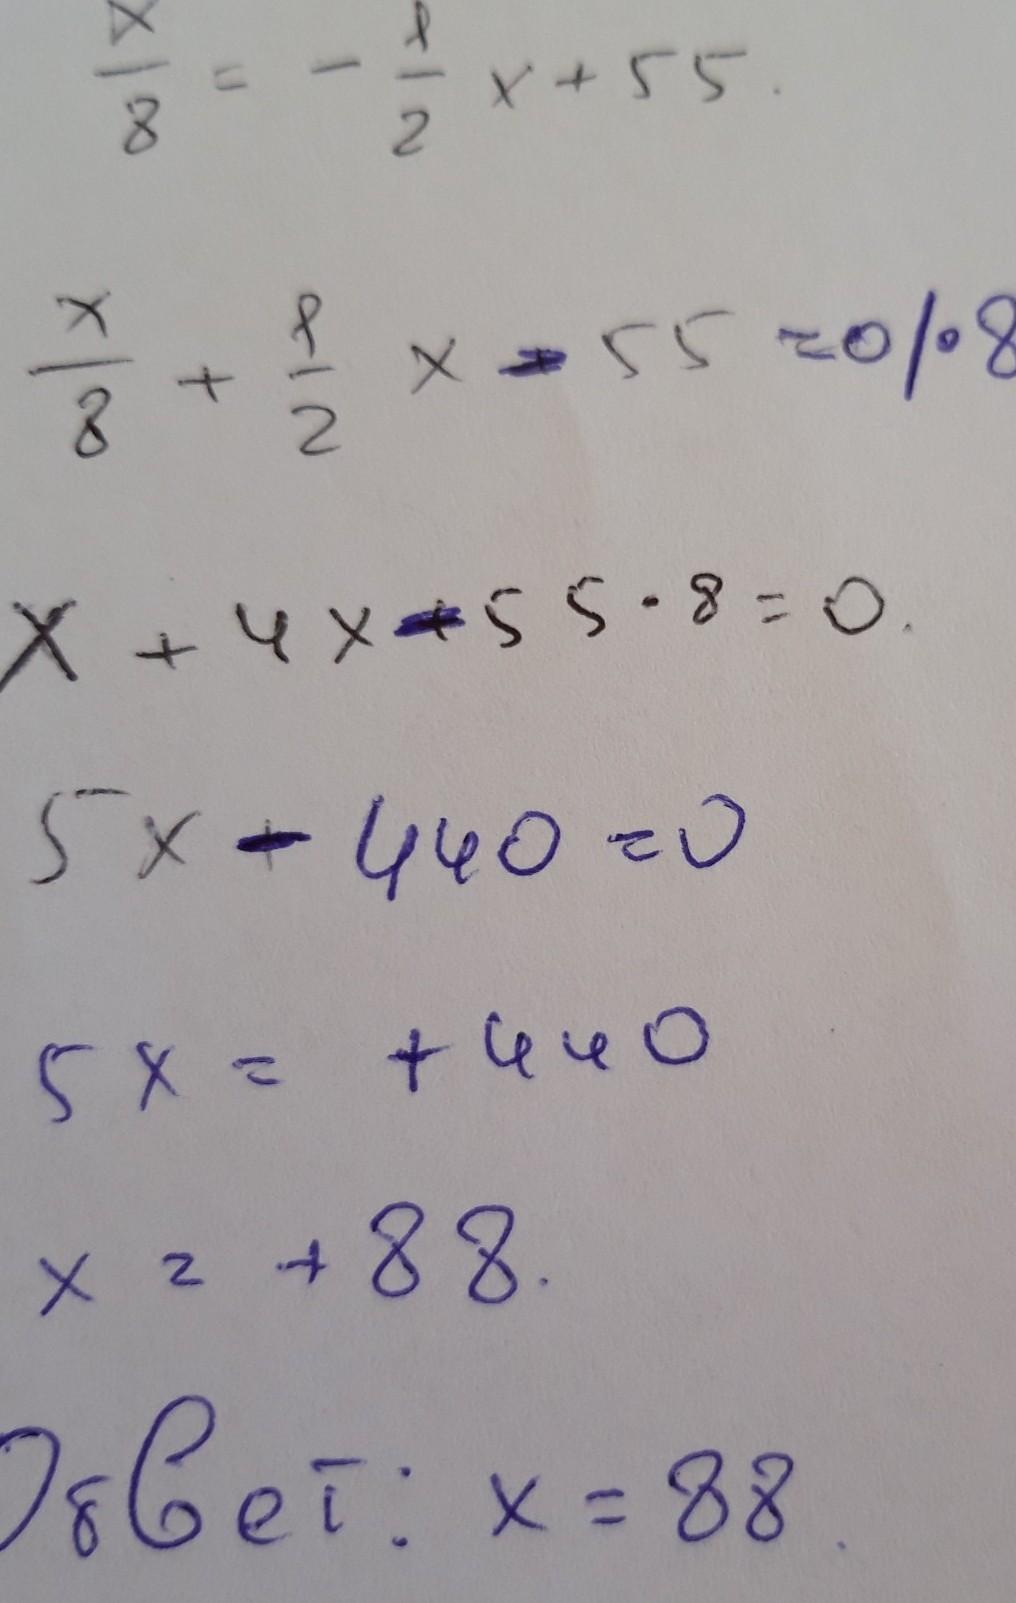 x/8 = - 1/2 x + 55.
x/8 + 1/2 x - 55 = 0 /·8
x + 4x - 55·8 = 0.
5x - 440 = 0
5x = +440
x = +88.
Ответ: x = 88.